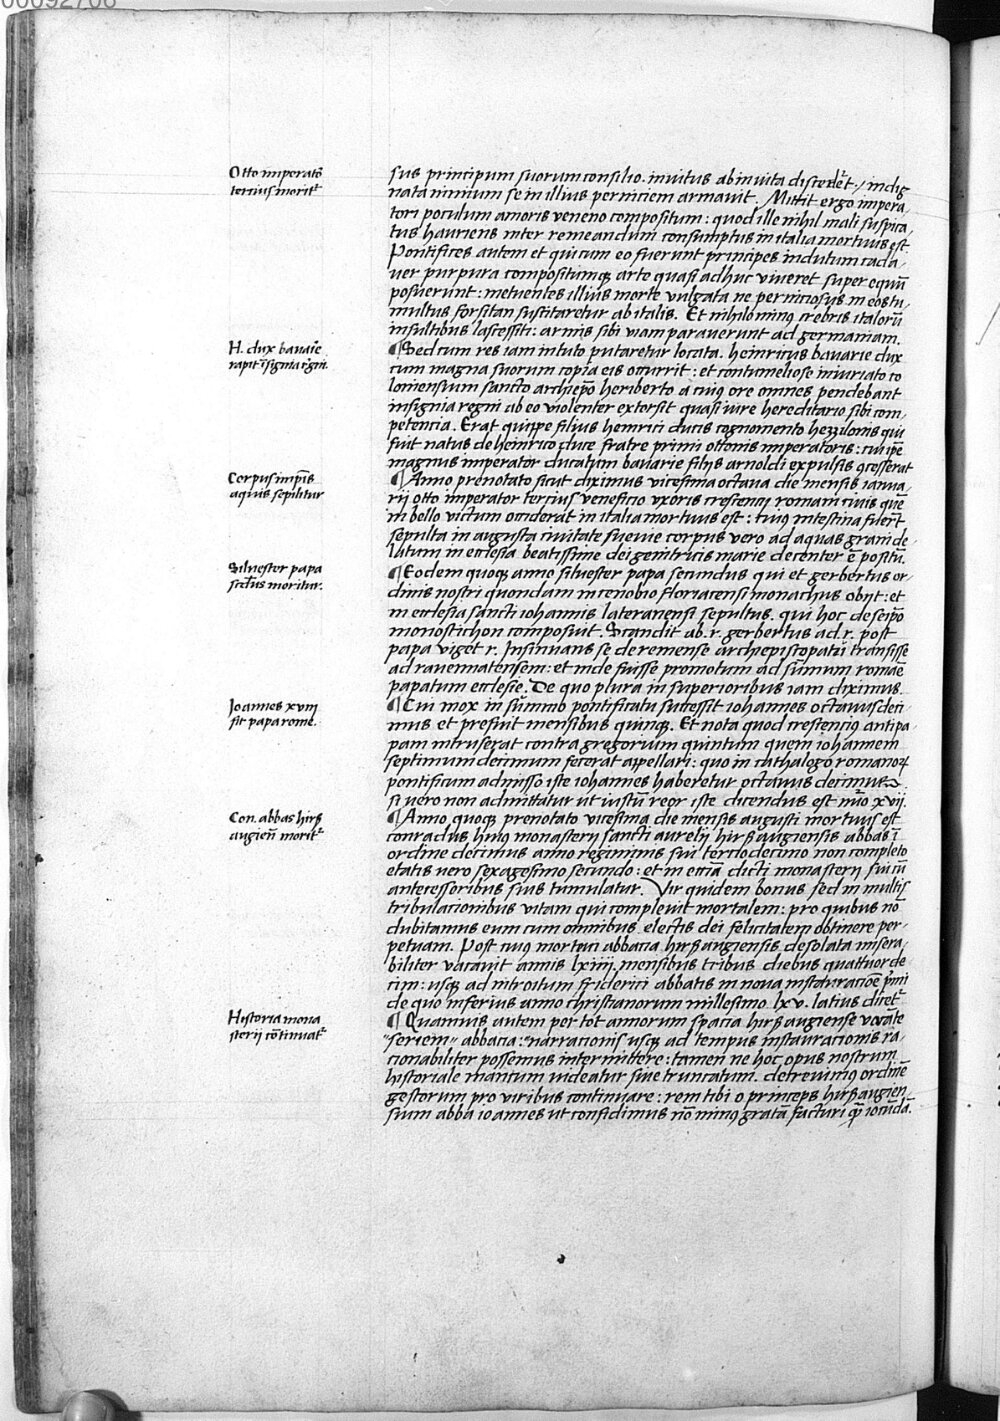 00092706
Otto imperatoꝛ
tercius moritᷣ
sus principum suorum consilio. inuitus ab inuita discedeꝛet: / indig
nata nimium se in illius perniciem armauit. Mittit ergo impera,
tori poculum amoris veneno compositum: quod ille nihil mali suspica,
tus hauriens inter remeandum consumptus in italia mortuus est
Pontifices autem et qui cum eo fuerunt principes indutum cada,
uer purpura compositumqꝫ arte quasi adhuc viueret super equū
posuerunt: metuentes illius morte vulgata ne perniciosus in eos tu,
multus forsitan suscitaretur ab italis. Et nihilominꝰ crebris italorū
insultibus lacessiti: armis sibi viam parauerunt ad germaniam.
H. dux bauarie
rapit īsignia rͤgni.
¶Sed cum res iam in tuto putaretur locata. heinricus bauarie dux
cum magna suorum copia eis occurrit: et contumeliose iniuriato co
loniensium sancto archiepo heriberto a cuiꝰ ore omnes pendebant
insignia regni ab eo violenter extorsit quasi iure hereditario sibi com,
petencia. Erat quippe filius heinrici ducis cognomento hezzilonis qui
fuit natus de heinrico duce fratre primi ottonis imperatoris: cui ipse
magnus imperator ducatum bauarie filijs arnoldi expulsis ꝯcesserat
Corpus impīs
aquis sepilitur
¶Anno prenotato sicut diximus vicesima octaua die mensis ianua,
rij otto imperator tercius veneficio vxoris crescentij romani ciuis quē
in bello victum occiderat in italia mortuus est: cuiꝰ intestina fuerūt
sepulta in augusta ciuitate sueuie corpus vero ad aquas grani de
latum in ecclesia beatissime dei genitricis marie decenter ē positū.
Siluester papa
scdus moritur.
¶Eodem quoqꝫ anno siluester papa secundus qui et gerbertus or,
dinis nostri quondam in cenobio floriacensi monachus obijt: et
in ecclesia sancti iohannis lateranensi sepultus. qui hoc de seipo
monostichon composuit. Scandit ab .r. gerbertus ad .r. post
papa viget r. Insinuans se de remense archiepiscopatu transisse
ad rauennatensem: et inde fuisse promotum ad sūmum romāe
papatum ecclesie. De quo plura in superioribus iam diximus.
Ioannes xvııı
fit papa rome.
¶Cui mox in summo pontificatu successit iohannes octauus deci
mus et prefuit mensibus quinqꝫ. Et nota quod crescenciꝰ antipa,
pam intruserat contra gregorium quintum quem iohannem
septimum decimum fecerat appellari: quo in cathalogo romanoꝝ
pontificum admisso iste iohannes haberetur octauus decimus
si vero non admittatur ut iustū reor iste dicendus est nūo xvij.
Con. abbas hirß
augien̄ moritᷣ
¶Anno quoqꝫ prenotato vicesima die mensis augusti mortuus est
conradus huiꝰ monasterij sancti aurelij hirßaugiensis abbas ī
ordine decimus anno regiminis sui terciodecimo non completo
etatis vero sexagesimo secundo: et in ecciā dicti monasterij sui cū
antecessoribus suis tumulatur. Vir quidem bonus sed in multis
tribulacionibus vitam qui compleuit mortalem: pro quibus nō
dubitamus eum cum omnibus electis dei felicitatem obtinere per-
petuam. Post cuiꝰ mortem abbacia hirßaugiensis desolata misera,
biliter vacauit annis lxiiij. mensibus tribus diebus quattuorde
cim: usqꝫ ad introitum friderici abbatis in noua instauracioē pͥmi
de quo inferius anno christianorum millesimo lxv. latius dicetᷣ
Historia mona
sterij cōtinuatᷣ
¶Quamuis autem per tot annorum spacia hirßaugiense vacāte
“seriem„ abbacia: “narracionis usqꝫ ad tempus instauracionis ra,
cionabiliter possemus intermittere: tamen ne hoc opus nostrum
historiale mancum videatur siue truncatum. decreuimꝰ ordinē
gestorum pro viribus continuare: rem tibi o princeps hirßaugien,
sium abba ioannes ut confidimus nō minꝰ gratā facturi qͣꝫ iocūdā.